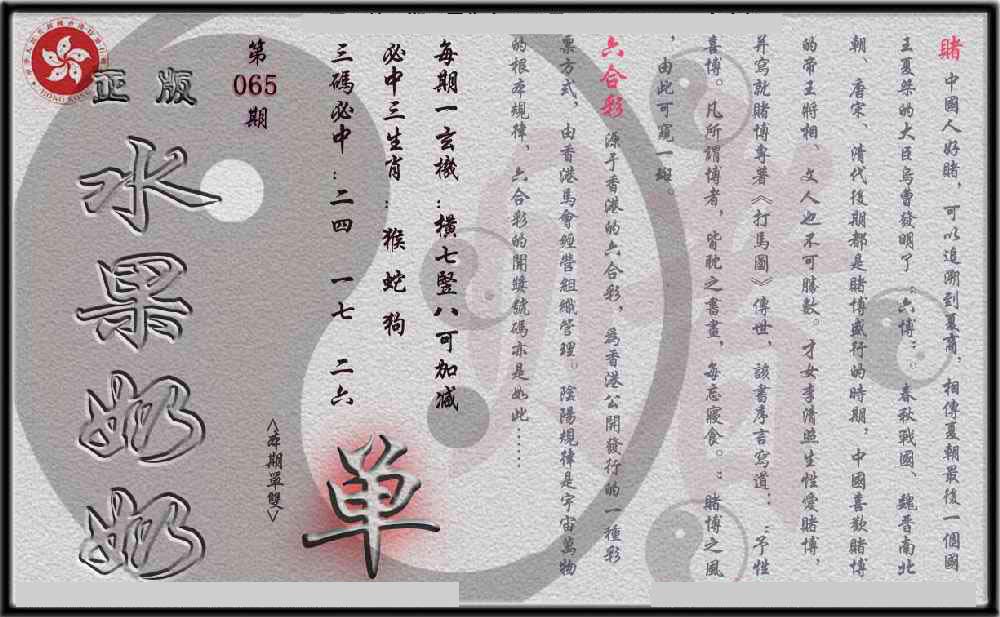 賭 中國人好賭，可以追溯到夏商，相傳夏朝最後一個國
王夏桀的大臣烏曹發明了“六博”。春秋戰國、魏晉南北
朝、唐宋、清代後期都是賭博盛行的時期，中國喜歡賭博
的帝王將相、文人也不可勝數。才女李清照生性愛賭博，
并寫就賭博專著《打馬圖》傳世，該書序言寫道：“予性
喜博。凡所謂博者，皆耽之晝夜，每忘寢食。”賭博之風
，由此可窺一斑。
六合彩 源于香港的六合彩，為香港公開發行的一種彩
票方式，由香港馬會經營組織管理。陰陽規律是宇宙萬物
的根本規律，六合彩的開獎號碼亦是如此……
每期一玄機：橫七豎八可加減
必中三生肖：猴 蛇 狗
三碼必中：二四 一七 二六
第
065
期
<本期單雙>
单
正版
水果奶奶